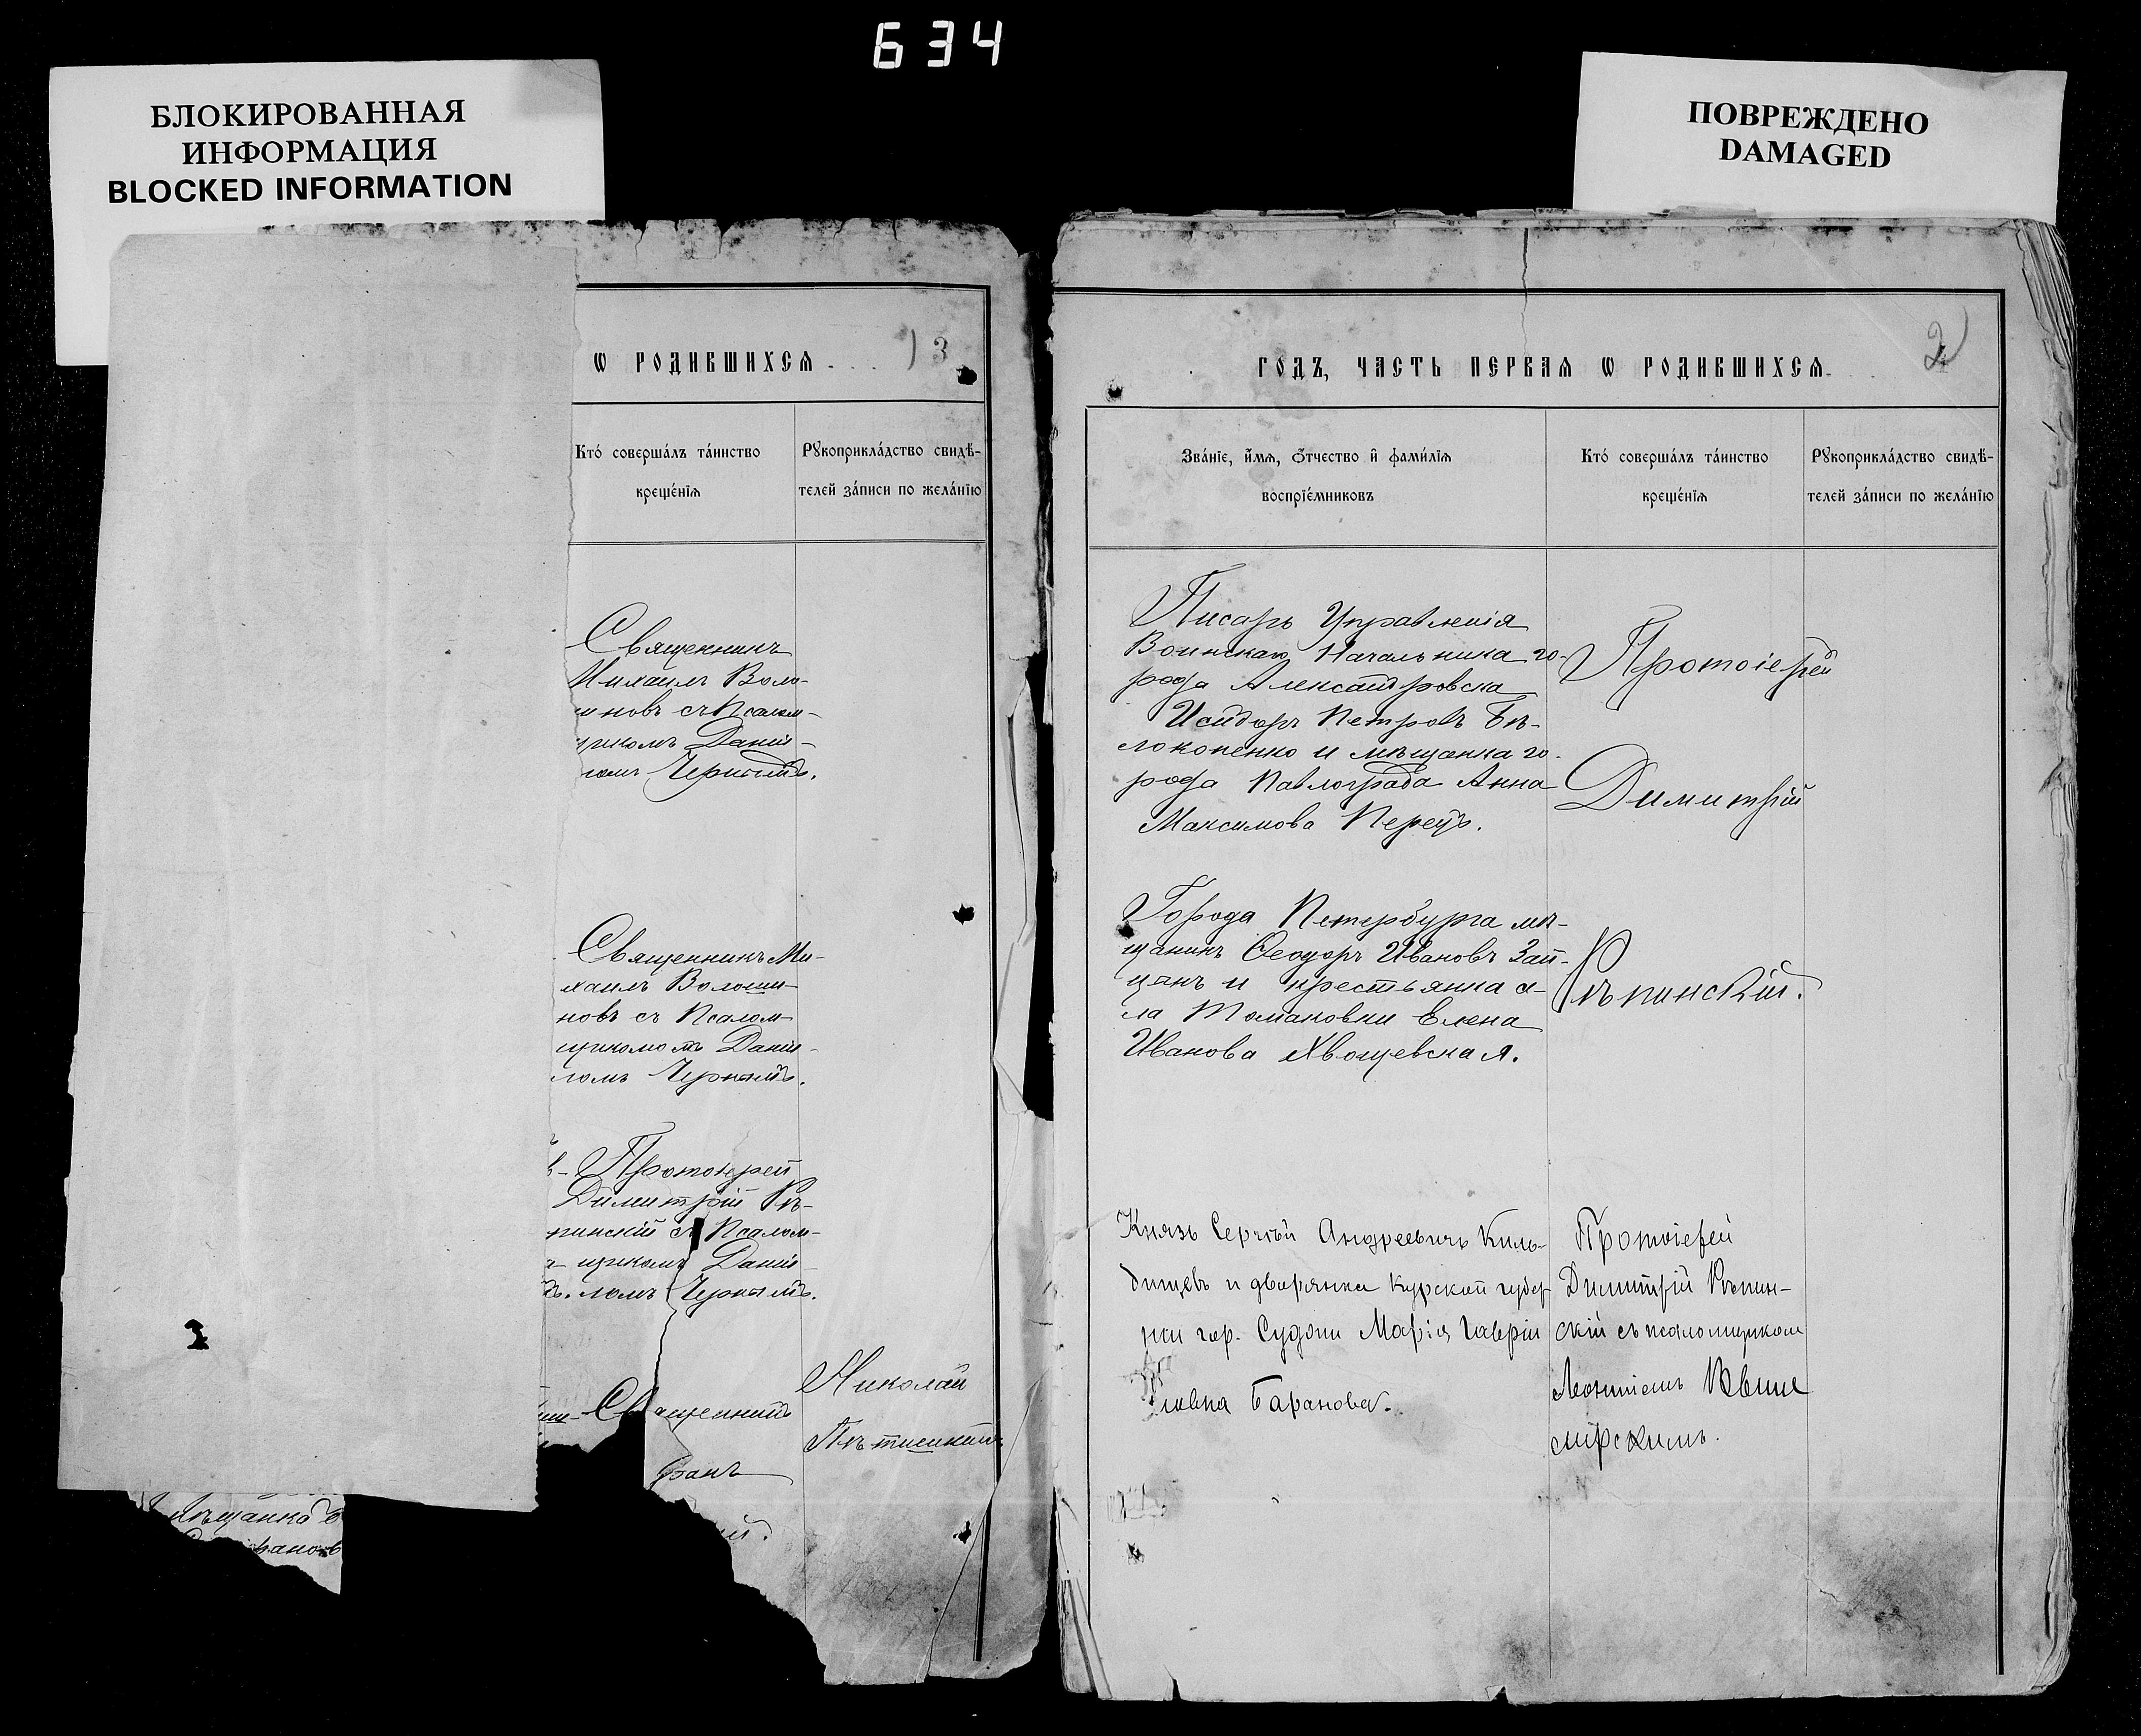 634
БЛОКИРОВАННАЯ
ИНФОРМАЦИЯ
BLOCKED INFORMATION
ПОВРЕЖДЕНО
DAMAGED
Ѡ РОДИВШИХСЯ
3
Кто́ соверша́лъ та́инство
креще́нїѧ
Рꙋкоприкла́дство свидѣ́-
телей за́писи по жела́нїю
Священникъ
Михаилъ Воло-
шновъ съ Псалом-
щикомъ Даніи-
ломъ Чернымъ.
Священникъ Ми-
хаилъ Волоши-
новъ съ Псалом-
щикомъ Даніи-
ломъ Чернымъ.
Протоіерей
Димитрій Рѣ-
пинскій съ Псалом-
щикомъ Даніи-
ломъ Чернымъ.
Священникъ
Николай
Мѣщанка
2
ГОДЪ, ЧАСТЬ ПЕРВАЯ Ѡ РОДИВШИХСЯ
Зва́нїе, и́мѧ, ѻ́тчество и҆ фами́лїѧ
воспрїе́мниковъ
Кто́ соверша́лъ та́инство
креще́нїѧ
Рꙋкоприкла́дство свидѣ́-
телей за́писи по жела́нїю
Писарь Управленія
Воинскаго Начальника го-
рода Александровска
Исидоръ Петровъ Бѣ-
локопенко и мѣщанка го-
рода Павлограда Анна
Максимова Перецъ.
Протоіерей
Димитрій
Рѣпинскій.
Города Петербурга мѣ-
щанинъ Ѳеодоръ Ивановъ Зай-
цевъ и крестьянка се-
ла Томаковки Елена
Иванова Хвощевская.
Князь Сергѣй Андреевичъ Киль-
дишевъ и дворянка Курской губер
ніи гор. Суджи Марія Гаврии
ловна Баранова.
Протоіерей
Димитрій Рѣпин-
скій съ псаломщикомъ
Леонтіемъ